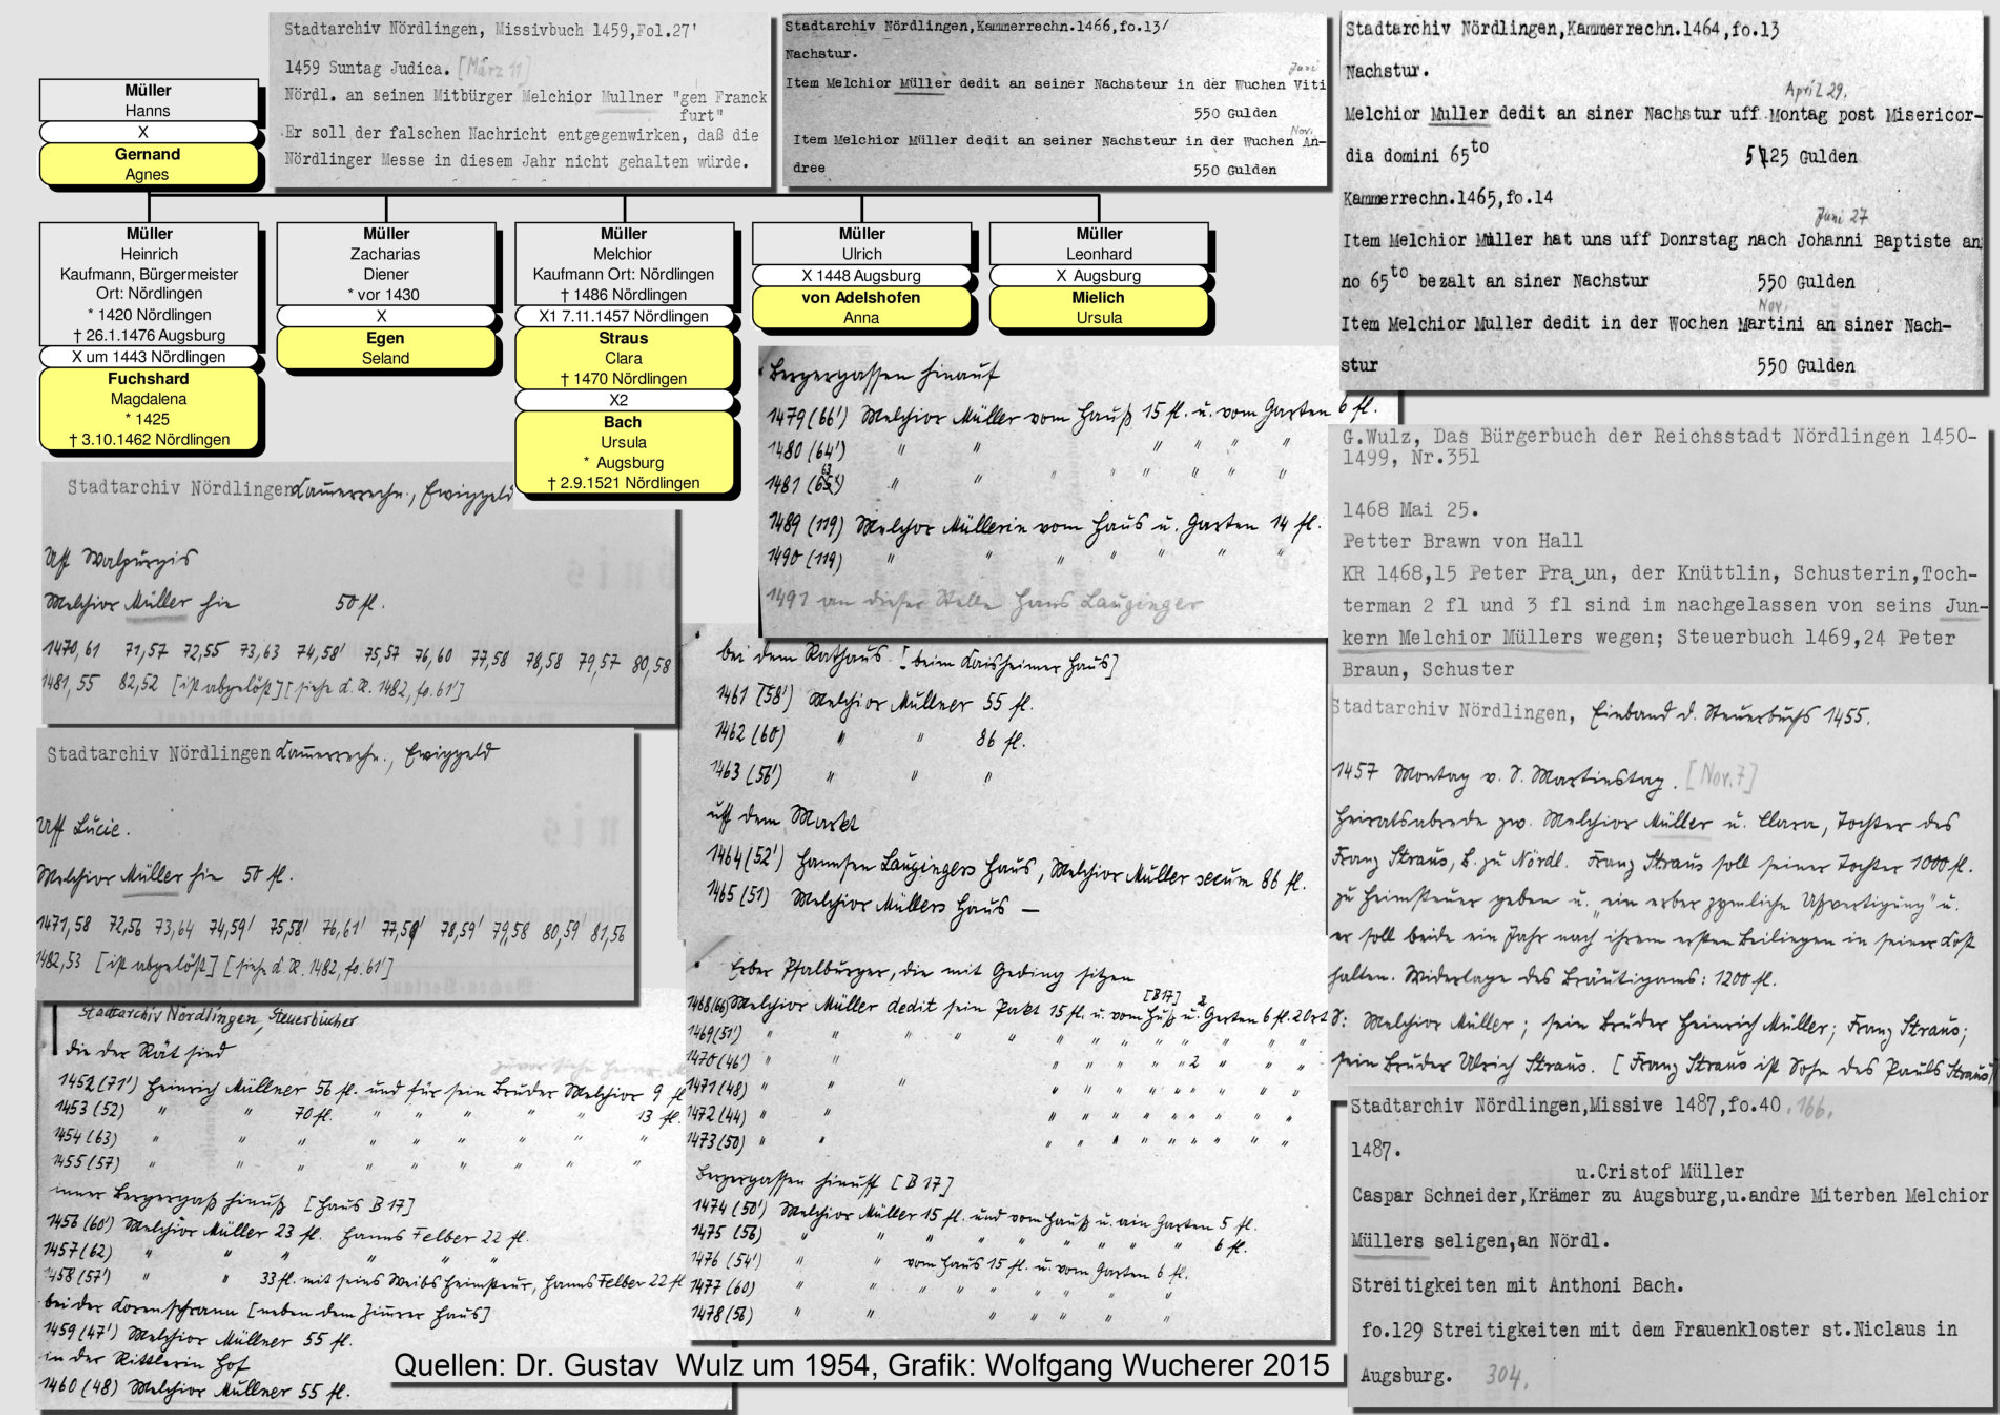 Stadtarchiv Nördlingen, Missivbuch 1459,Fol.27'
1459 Suntag Judica. [März 11]
Nördl. an seinen Mitbürger Melchior Mullner "gen Franck
furt"
Er soll der falschen Nachricht entgegenwirken, daß die
Nördlinger Messe in diesem Jahr nicht gehalten würde.
Stadtarchiv Nördlingen,Kammerrechn.1466,fo.13/
Nachstur.
Juni
Item Melchior Müller dedit an seiner Nachsteur in der Wuchen Viti
550 Gulden
Nov.
Item Melchior Müller dedit an seiner Nachsteur in der Wuchen An-
dree
550 Gulden
Stadtarchiv Nördlingen,Kammerrechn.1464,fo.13
Nachstur.
April 29.
Melchior Muller dedit an siner Nachstur uff Montag post Misericor-
dia domini 65to 525 Gulden
Kammerrechn.1465,fo.14
Juni 27
Item Melchior Müller hat uns uff Donrstag nach Johanni Baptiste an
no 65to bezalt an siner Nachstur 550 Gulden
Nov.
Item Melchior Muller dedit in der Wochen Martini an siner Nach-
stur 550 Gulden
Müller
Hanns
X
Gernand
Agnes
Müller
Heinrich
Kaufmann, Bürgermeister
Ort: Nördlingen
* 1420 Nördlingen
† 26.1.1476 Augsburg
X um 1443 Nördlingen
Fuchshard
Magdalena
* 1425
† 3.10.1462 Nördlingen
Müller
Zacharias
Diener
* vor 1430
X
Egen
Seland
Müller
Melchior
Kaufmann Ort: Nördlingen
† 1486 Nördlingen
X1 7.11.1457 Nördlingen
Straus
Clara
† 1470 Nördlingen
X2
Bach
Ursula
* Augsburg
† 2.9.1521 Nördlingen
Müller
Ulrich
X 1448 Augsburg
von Adelshofen
Anna
Müller
Leonhard
X Augsburg
Mielich
Ursula
Bergergassen hinauf
1479 (66') Melchior Müller vom Hauß 15 fl. u. vom Garten 6 fl.
1480 (64') " " " " " " "
1481 (63) " " " " " " "
1489 (119) Melchor Müllerin vom Haus u. Garten 14 fl.
1490 (119) " " " " " " "
1491 an dieser Stelle Hans Lauginger
G.Wulz, Das Bürgerbuch der Reichsstadt Nördlingen 1450-
1499, Nr.351
1468 Mai 25.
Petter Brawn von Hall
KR 1468,15 Peter Pra un, der Knüttlin, Schusterin,Toch-
terman 2 fl und 3 fl sind im nachgelassen von seins Jun-
kern Melchior Müllers wegen; Steuerbuch 1469,24 Peter
Braun, Schuster
Stadtarchiv Nördlingen Kammerrechn., Ewiggeld
Uff Walpurgis
Melchior Müller hie 50 fl.
1470,61 71,57 72,55 73,63 74,58' 75,57 76,60 77,58 78,58 79,57 80,58
1481,55 82,52 [ist abgelößt] [siehe K.R. 1482, fo.61']
Stadtarchiv Nördlingen Kammerrechn., Ewiggeld
Uff Lucie.
Melchior Müller hie 50 fl.
1471,58 72,56 73,64 74,59' 75,58' 76,61' 77,59' 78,59' 79,58 80,59' 81,56
1482,53 [ist abgelößt] [siehe K.R. 1482, fo.61']
bei dem Rathaus [beim Kaisheimer Haus]
1461 (58') Melchior Müllner 55 fl.
1462 (60) " " 86 fl.
1463 (56') " " "
uff dem Markt
1464 (52') Hannsen Laugingers Haus, Melchior Müller secum 86 fl.
1465 (51) Melchior Müllers Haus —
Stadtarchiv Nördlingen, Einband d. Steuerbuchs 1455.
1457 Montag v. S. Martinstag. [Nov.7]
Heiratsabrede zw. Melchior Müller u. Clara, Tochter des
Franz Straus, B. zu Nördl. Franz Straus soll seiner Tochter 1000 fl.
zu Heimsteuer geben u. "ein erber zymliche Ußvertigung" u.
er soll beide ein Jahr nach ihrem ersten Beiligen in seiner Kost
halten. Widerlage des Bräutigams: 1200 fl.
S: Melchior Müller; sein Bruder Heinrich Müller; Franz Straus;
sein Bruder Ulrich Straus. [Franz Straus ist Sohn des Pauls Straus]
Stadtarchiv Nördlingen, Steuerbücher
die der Rät sind
1452 (71') Heinrich Müllner 56 fl. und für sein Bruder Melchior 9 fl
1453 (52) " " 70 fl. " " " " " 13 fl.
1454 (63) " " " " " " " " "
1455 (57) " " " " " " " " "
inner Bergergaß hinuß [Haus B 17]
1456 (60') Melchior Müller 23 fl. Hanns Felber 22 fl.
1457 (62) " " " " "
1458 (57') " " 33 fl. mit seins Weibs Heimsteur, Hanns Felber 22 fl
bei der Korenschrann [neben dem Zinner Haus]
1459 (47') Melchior Müllner 55 fl.
in der Rittlerin Hof
1460 (48) Melchior Müllner 55 fl.
Erber Pfalburger, die mit Geding sitzen
[B17]
1468 (66) Melchior Müller dedit sein Pakt 15 fl. u. vom Huß u. 2 Gerten 6 fl. 2 ort
1469 (51') " " " " " " " " " " " "
1470 (46') " " " " " " 2 " " "
1471 (48) " " " " " " " " " "
1472 (44) " " " " " " " " " "
1473 (50) " " " " " " " " " "
Bergergassen hinuff [B 17]
1474 (50') Melchior Müller 15 fl. und vom Hauß u. ain Garten 5 fl.
1475 (56) " " " " " " " " " 6 fl.
1476 (54') " " vom Haus 15 fl. u. vom Garten 6 fl.
1477 (60) " " " " " " " " "
1478 (56) " " " " " " "
Stadtarchiv Nördlingen,Missive 1487,fo.40. 166.
1487.
u.Cristof Müller
Caspar Schneider,Krämer zu Augsburg,u.andre Miterben Melchior
Müllers seligen,an Nördl.
Streitigkeiten mit Anthoni Bach.
fo.129 Streitigkeiten mit dem Frauenkloster st.Niclaus in
Augsburg. 304.
Quellen: Dr. Gustav Wulz um 1954, Grafik: Wolfgang Wucherer 2015